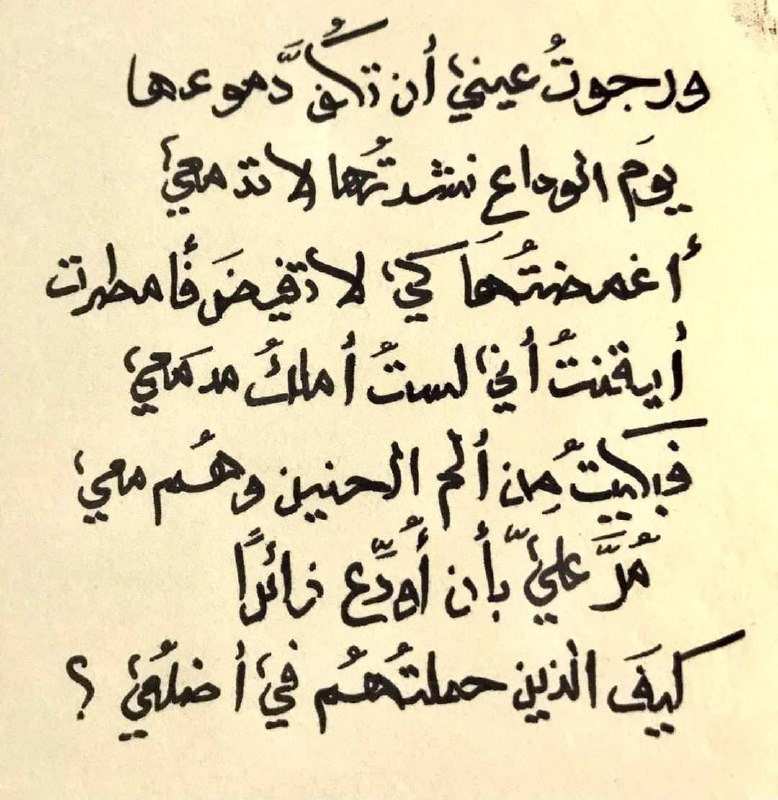 ورجوتُ عيني أن تكُفَّ دَموعها
يومَ الوداع نشدتُها لا تدمعي
أغمضتُها كي لا تفيضَ فأمطرت
أيقنتُ أني لستُ أملكُ مدمَعي
فبكيتُ مِن ألم الحنين وهُم معي
مُرَّ عليّ بأن أُودِّع زائرًا
كيفَ الذين حملتُهُم في أضلُعي ؟